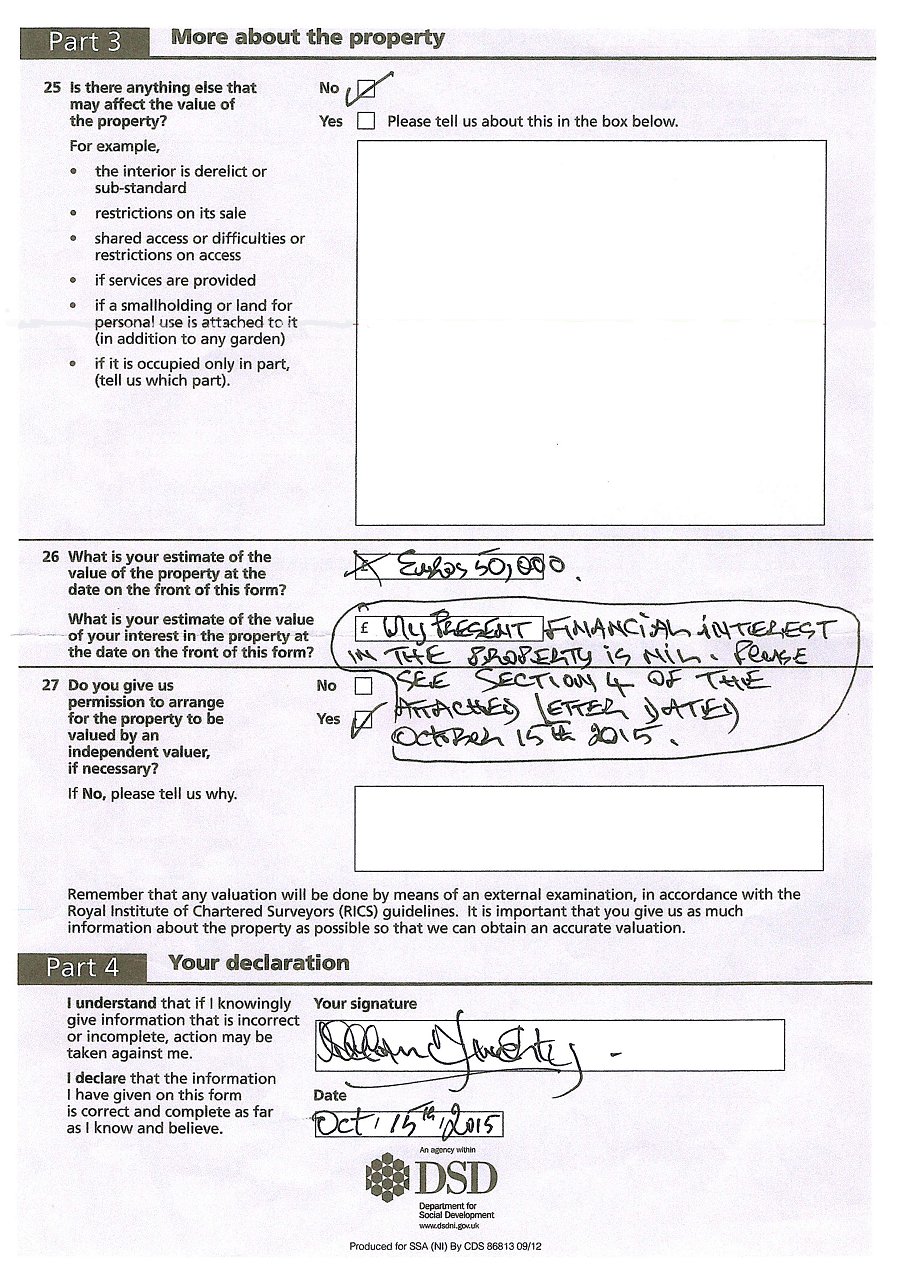 Part 3 More about the property
25 Is there anything else that
may affect the value of
the property?
No
Yes Please tell us about this in the box below.
For example,
• the interior is derelict or
sub-standard
• restrictions on its sale
• shared access or difficulties or
restrictions on access
• if services are provided
• if a smallholding or land for
personal use is attached to it
(in addition to any garden)
• if it is occupied only in part,
(tell us which part).
26 What is your estimate of the
value of the property at the
date on the front of this form?
£ Euros 50,000.
What is your estimate of the value
of your interest in the property at
the date on the front of this form?
£ My PRESENT FINANCIAL INTEREST
IN THE PROPERTY IS NIL. PLEASE
SEE SECTION 4 OF THE
ATTACHED LETTER DATED
OCTOBER 15th 2015.
27 Do you give us
permission to arrange
for the property to be
valued by an
independent valuer,
if necessary?
No
Yes
If No, please tell us why.
Remember that any valuation will be done by means of an external examination, in accordance with the
Royal Institute of Chartered Surveyors (RICS) guidelines. It is important that you give us as much
information about the property as possible so that we can obtain an accurate valuation.
Part 4 Your declaration
I understand that if I knowingly
give information that is incorrect
or incomplete, action may be
taken against me.
I declare that the information
I have given on this form
is correct and complete as far
as I know and believe.
Your signature
Date
Oct, 15th, 2015
An agency within
DSD
Department for
Social Development
www.dsdni.gov.uk
Produced for SSA (NI) By CDS 86813 09/12